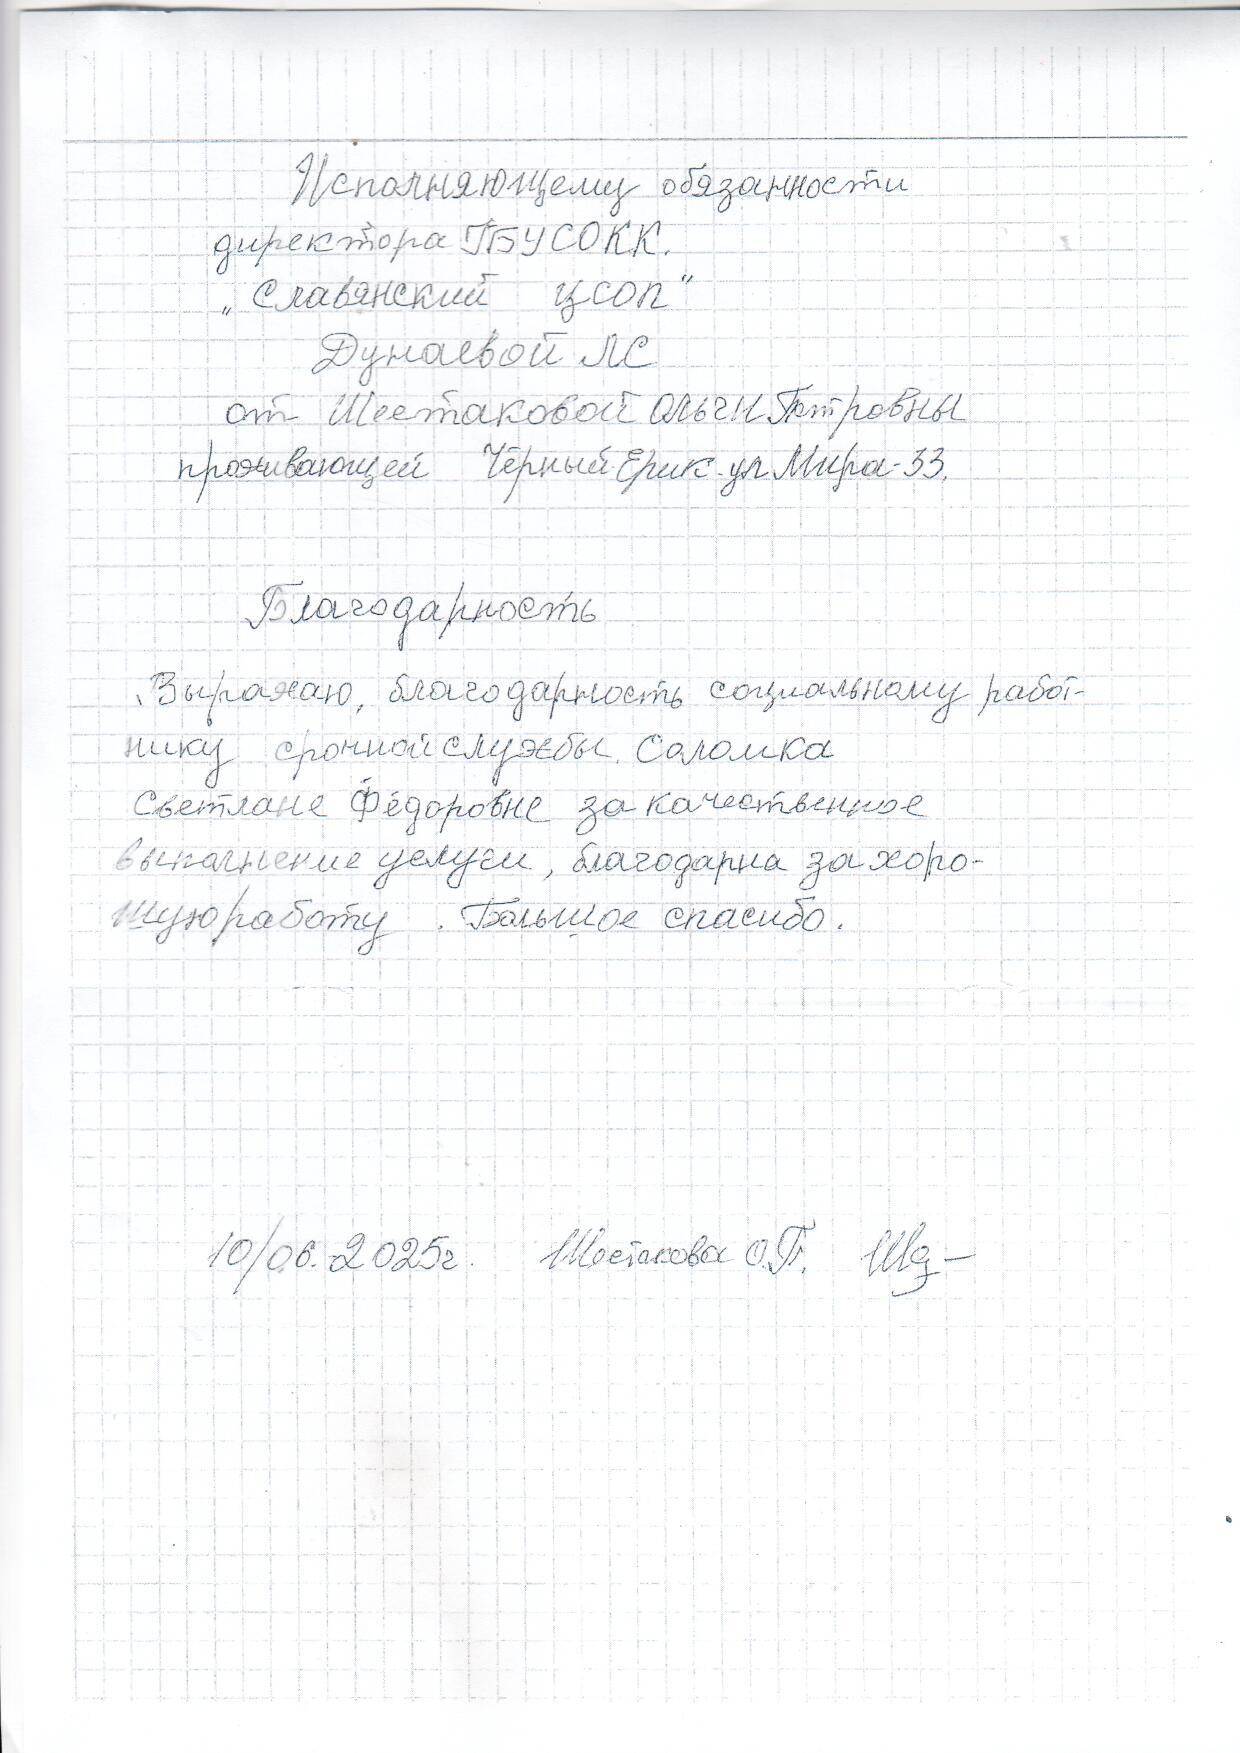 Исполняющему обязанности
директора ГБУСОКК.
„Славянский ЦСОП"
Дунаевой ЛС
от Шестаковой Ольги Петровны
проживающей Чёрный Ерик ул Мира-33.
Благодарность
Выражаю, благодарность социальному работ-
нику срочной службы. Соломка
Светлане Фёдоровне за качественное
выполнение услуги, благодарна за хоро-
шую работу. Большое спасибо.
10/06.2025г. Шестакова О.П.